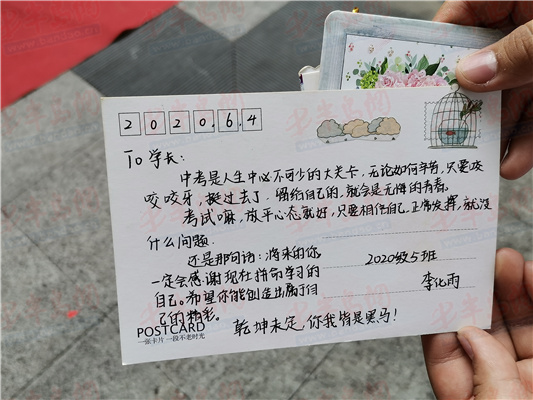 2020.6.4
To 学长:
中考是人生中必不可少的大关卡,无论如何辛苦,只要咬
咬咬牙,挺过去了,留给自己的,就会是无悔的青春。
考试嘛,放平心态就好,只要相信自己,正常发挥,就没
什么问题.
还是那句话:将来的你
一定会感谢现在拼命学习的
自己。希望你能创造出属于自
己的精彩。
2020级5班
李化雨
乾坤未定,你我皆是黑马!
POSTCARD
一张卡片 一段不老时光